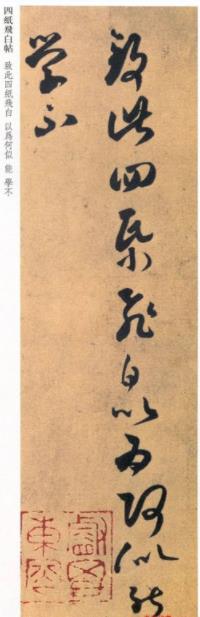 致此四紙飛白以為何似能
學不
四紙飛白帖 致此四紙飛白 以爲何似 能 學不